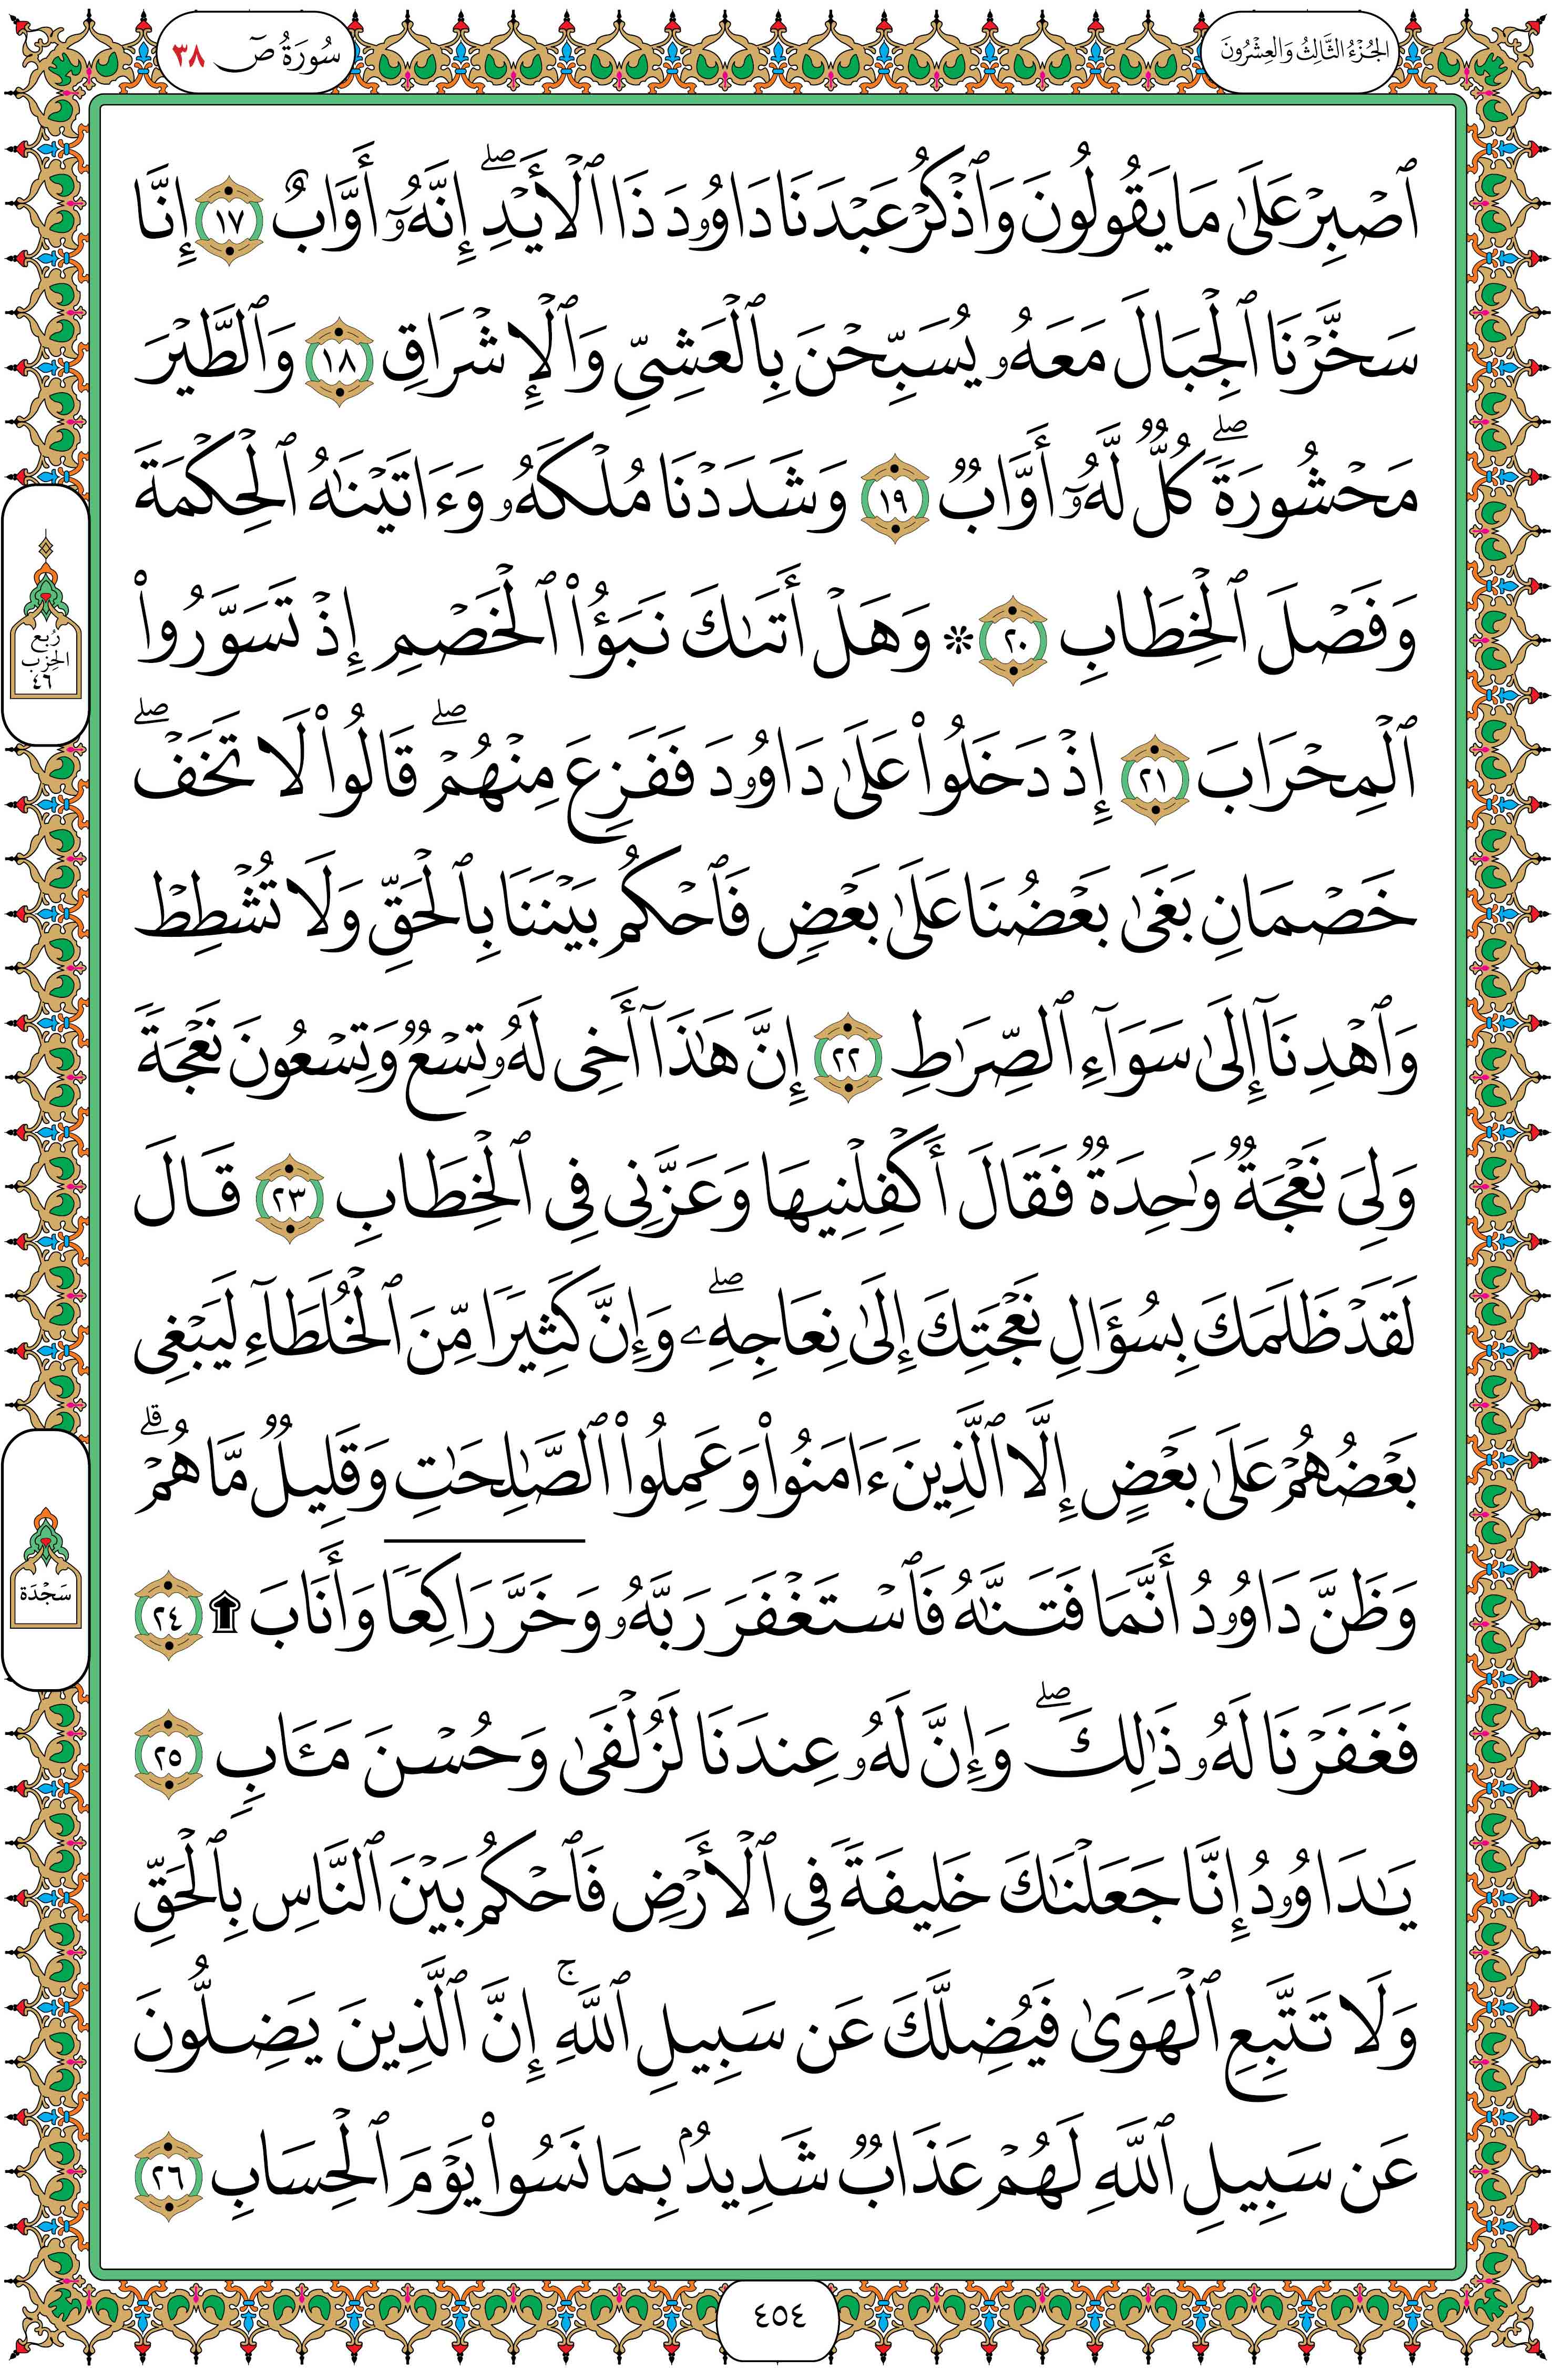 الجُزْءُ الثَّالِثُ وَالعِشْرُونَ
سُورَةُ صٓ ٣٨
ٱصۡبِرۡ عَلَىٰ مَا يَقُولُونَ وَٱذۡكُرۡ عَبۡدَنَا دَاوُۥدَ ذَا ٱلۡأَيۡدِۖ إِنَّهُۥٓ أَوَّابٌ ١٧ إِنَّا
سَخَّرۡنَا ٱلۡجِبَالَ مَعَهُۥ يُسَبِّحۡنَ بِٱلۡعَشِيِّ وَٱلۡإِشۡرَاقِ ١٨ وَٱلطَّيۡرَ
مَحۡشُورَةٗۖ كُلّٞ لَّهُۥٓ أَوَّابٞ ١٩ وَشَدَدۡنَا مُلۡكَهُۥ وَءَاتَيۡنَٰهُ ٱلۡحِكۡمَةَ
وَفَصۡلَ ٱلۡخِطَابِ ٢٠ ۞ وَهَلۡ أَتَىٰكَ نَبَؤُاْ ٱلۡخَصۡمِ إِذۡ تَسَوَّرُواْ
ٱلۡمِحۡرَابَ ٢١ إِذۡ دَخَلُواْ عَلَىٰ دَاوُۥدَ فَفَزِعَ مِنۡهُمۡۖ قَالُواْ لَا تَخَفۡۖ
خَصۡمَانِ بَغَىٰ بَعۡضُنَا عَلَىٰ بَعۡضٖ فَٱحۡكُم بَيۡنَنَا بِٱلۡحَقِّ وَلَا تُشۡطِطۡ
وَٱهۡدِنَآ إِلَىٰ سَوَآءِ ٱلصِّرَٰطِ ٢٢ إِنَّ هَٰذَآ أَخِي لَهُۥ تِسۡعٞ وَتِسۡعُونَ نَعۡجَةٗ
وَلِيَ نَعۡجَةٞ وَٰحِدَةٞ فَقَالَ أَكۡفِلۡنِيهَا وَعَزَّنِي فِي ٱلۡخِطَابِ ٢٣ قَالَ
لَقَدۡ ظَلَمَكَ بِسُؤَالِ نَعۡجَتِكَ إِلَىٰ نِعَاجِهِۦۖ وَإِنَّ كَثِيرٗا مِّنَ ٱلۡخُلَطَآءِ لَيَبۡغِي
بَعۡضُهُمۡ عَلَىٰ بَعۡضٍ إِلَّا ٱلَّذِينَ ءَامَنُواْ وَعَمِلُواْ ٱلصَّٰلِحَٰتِ وَقَلِيلٞ مَّا هُمۡۗ
وَظَنَّ دَاوُۥدُ أَنَّمَا فَتَنَّٰهُ فَٱسۡتَغۡفَرَ رَبَّهُۥ وَخَرَّۤ رَاكِعٗاۤ وَأَنَابَ ۩ ٢٤
فَغَفَرۡنَا لَهُۥ ذَٰلِكَۖ وَإِنَّ لَهُۥ عِندَنَا لَزُلۡفَىٰ وَحُسۡنَ مَـَٔابٖ ٢٥
يَٰدَاوُۥدُ إِنَّا جَعَلۡنَٰكَ خَلِيفَةٗ فِي ٱلۡأَرۡضِ فَٱحۡكُم بَيۡنَ ٱلنَّاسِ بِٱلۡحَقِّ
وَلَا تَتَّبِعِ ٱلۡهَوَىٰ فَيُضِلَّكَ عَن سَبِيلِ ٱللَّهِۚ إِنَّ ٱلَّذِينَ يَضِلُّونَ
عَن سَبِيلِ ٱللَّهِ لَهُمۡ عَذَابٞ شَدِيدُۢ بِمَا نَسُواْ يَوۡمَ ٱلۡحِسَابِ ٢٦
رُبع
الحِزب
٤٦
سَجْدَة
٤٥٤